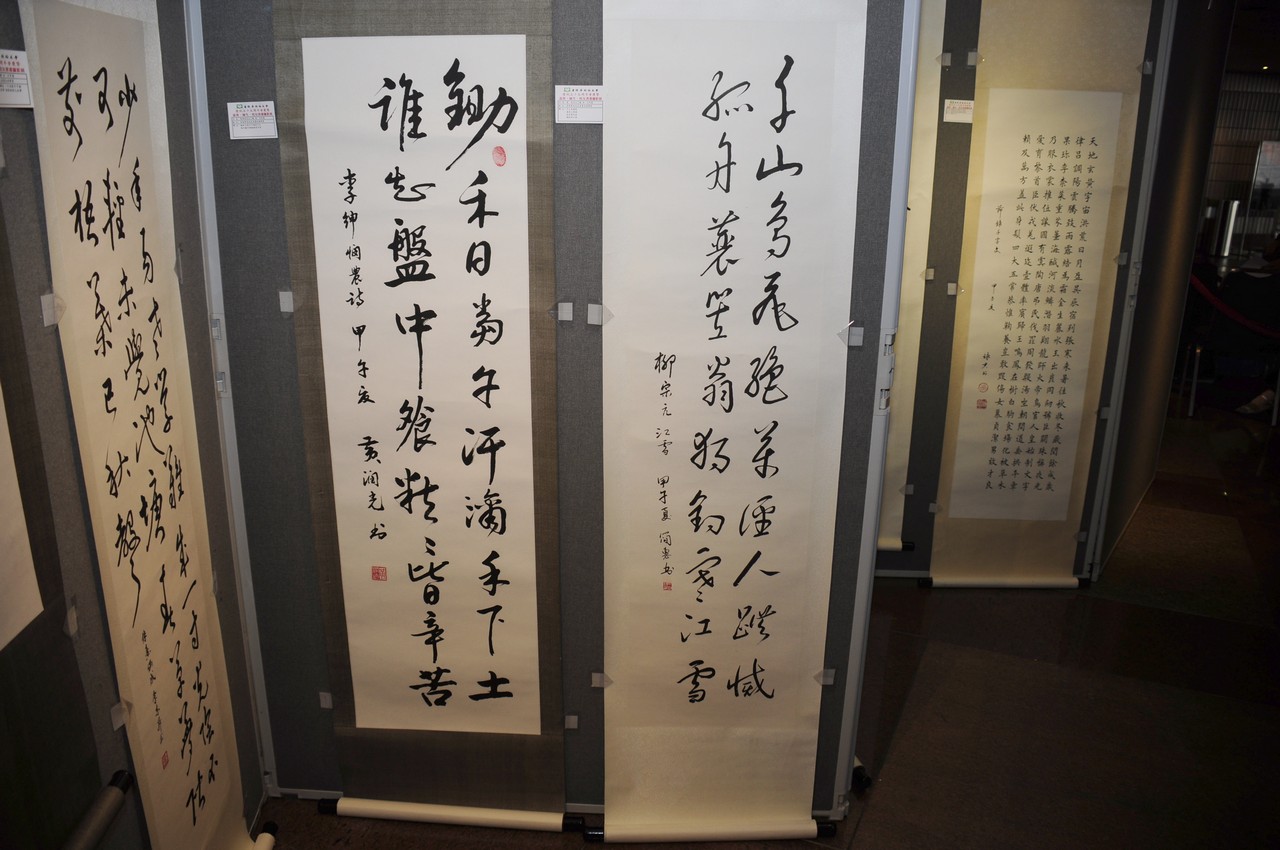 天地玄黄宇宙洪荒日月盈昃辰宿列張寒来暑往秋收冬藏閏餘成歲
律吕調陽雲騰致雨露結為霜金生麗水玉出崑岡劍號巨闕珠稱夜光
菓珍李柰菜重芥薑海鹹河淡鱗潛羽翔龍師火帝鳥官人皇始制文字
乃服衣裳推位讓國有虞陶唐弔民伐罪周發殷湯坐朝問道垂拱平章
愛育黎首臣伏戎羌遐邇壹體率賓歸王鳴鳳在樹白駒食場化被草木
賴及萬方蓋此身髮四大五常恭惟鞠養豈敢毀傷女慕貞潔男效才良
節錄千字文 甲午夏
千山鳥飛絕萬徑人蹤滅
孤舟蓑笠翁獨釣寒江雪
柳宗元 江雪 甲午夏
鋤禾日當午汗滴禾下土
誰知盤中飧粒粒皆辛苦
李紳憫農詩 甲午夏 黃潤光书
少年易老學難成一寸光陰不
可輕未覺池塘春草夢階
前梧葉已秋聲